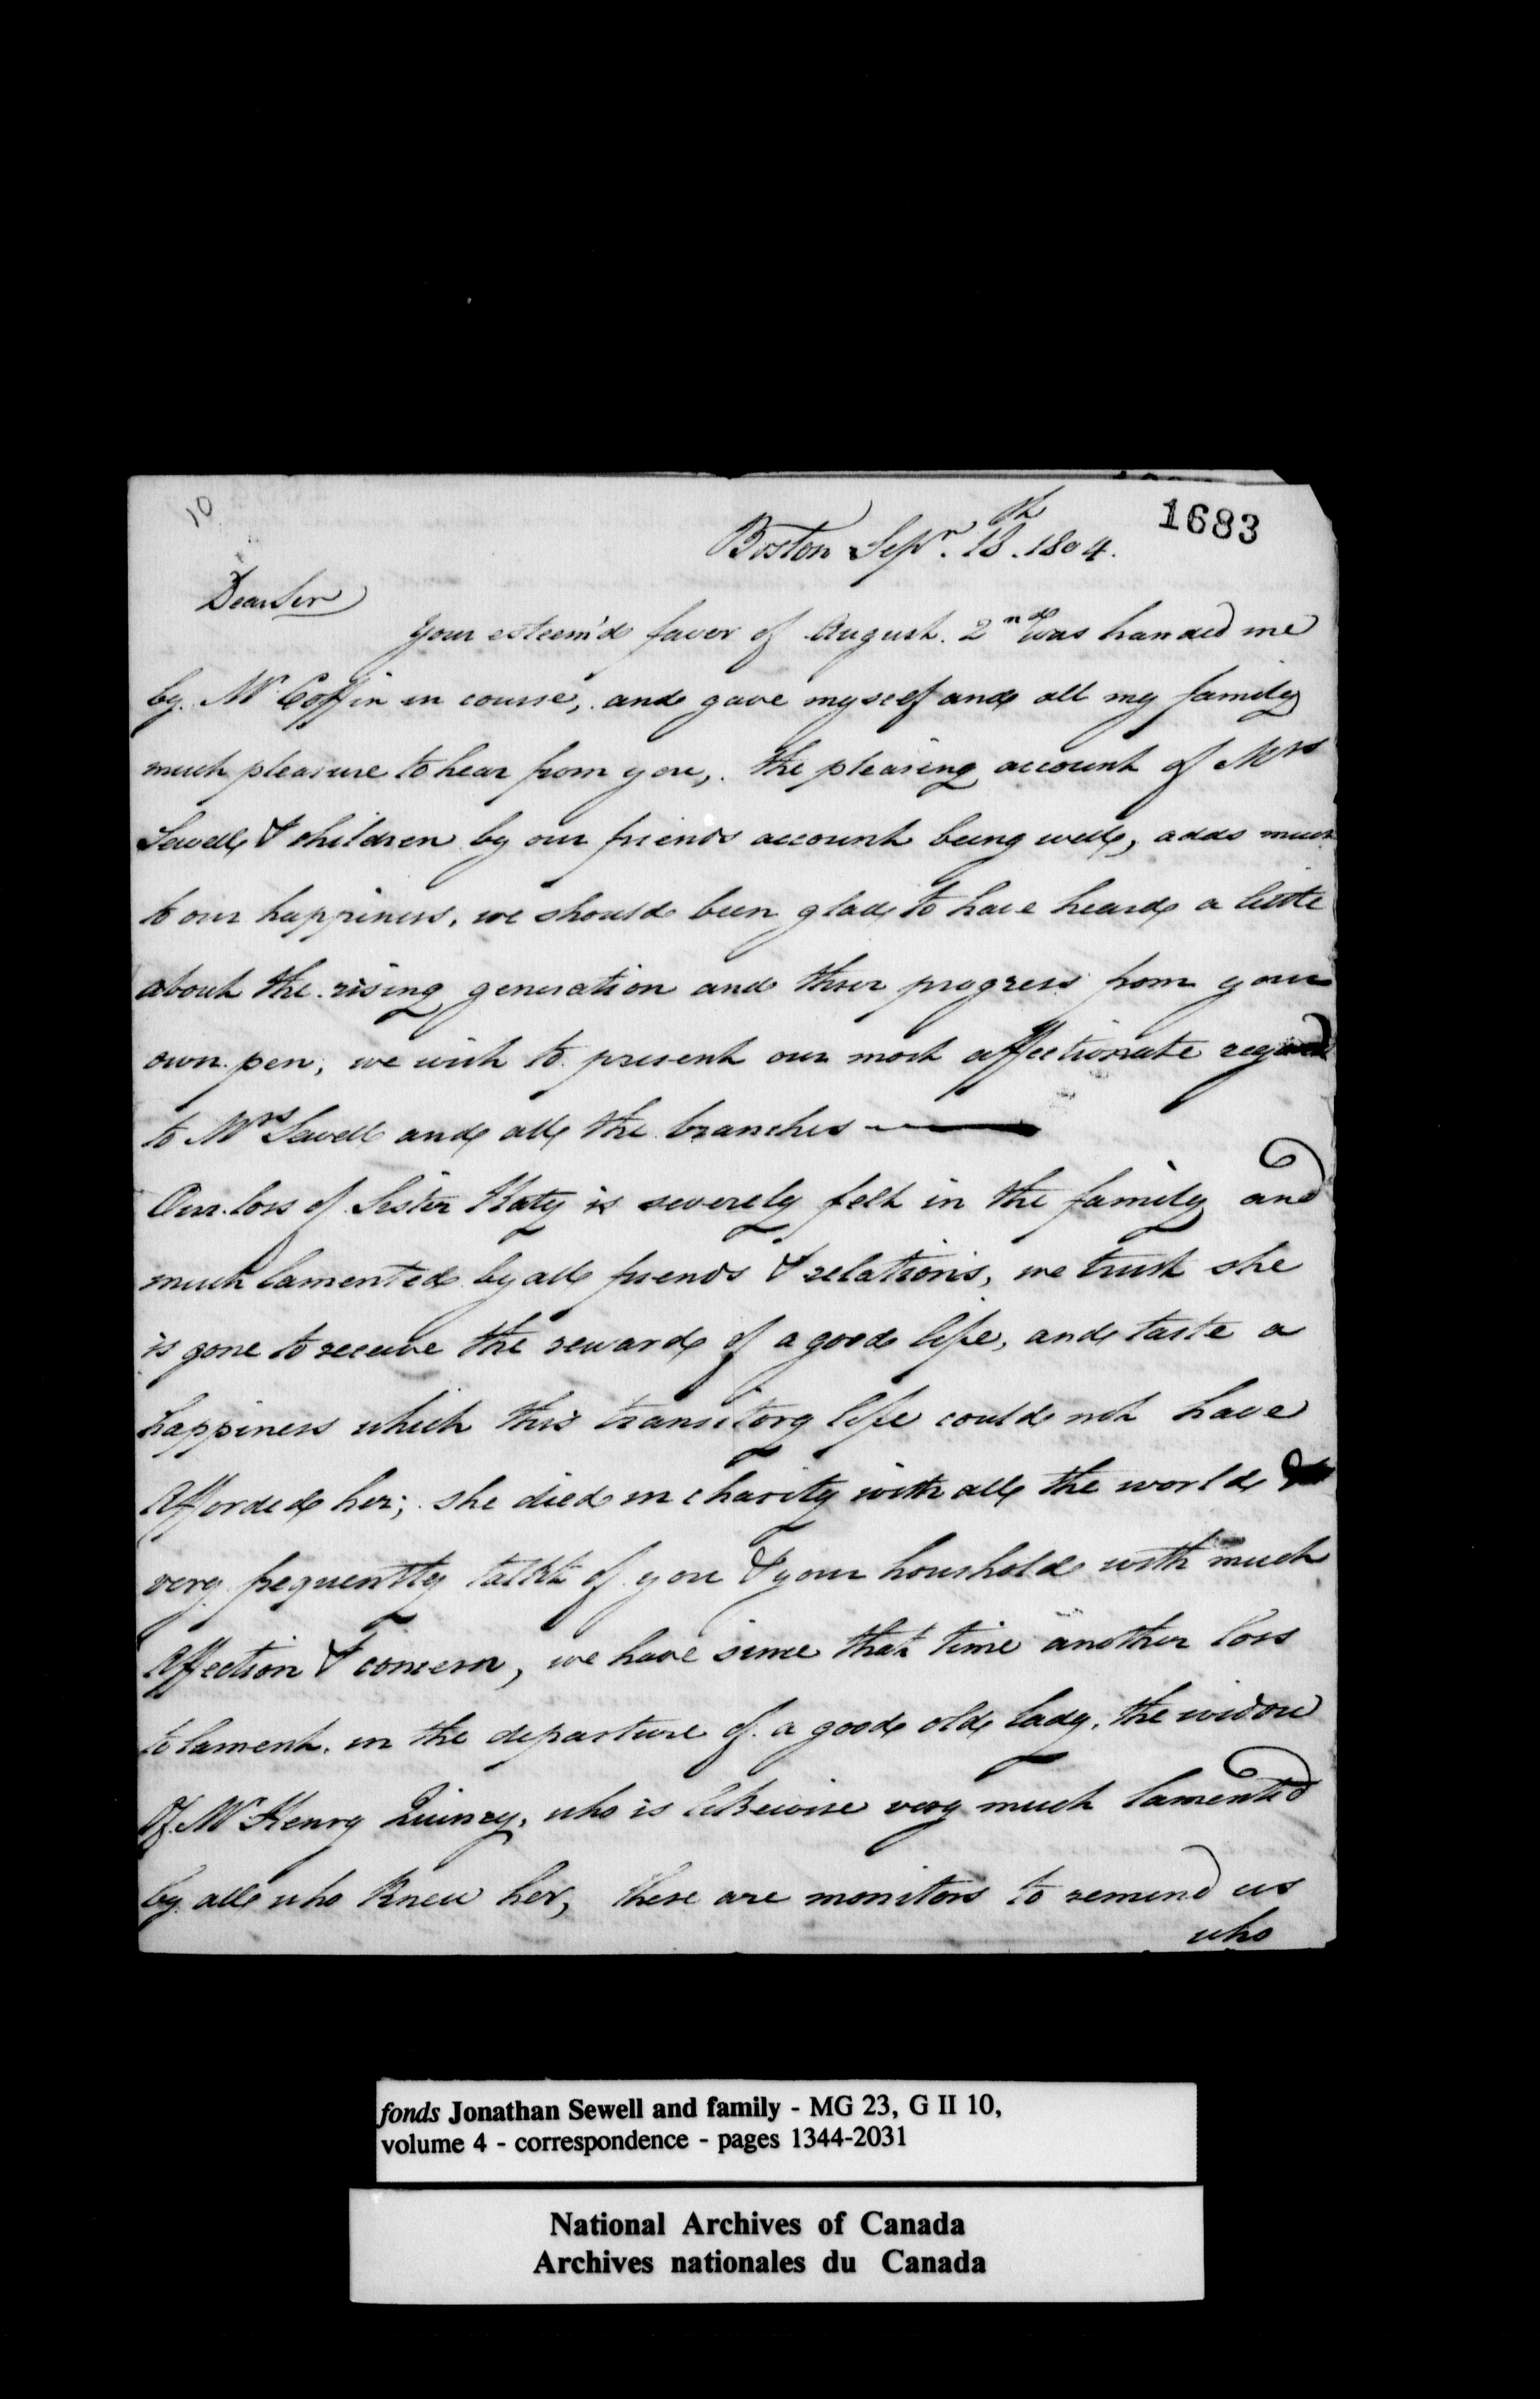 10
1683
Boston Sepr. 18th. 1804.
Dear Sir
Your esteem'd favor of August. 2nd was handed me
by Mr Coffin in course, and gave myself and all my family
much pleasure to hear from you, the pleasing account of Mrs
Sewell & children by our friends account being well, adds much
to our happiness, we should been glad to have heard a little
about the rising generation and their progress from your
own pen; we wish to present our most affectionate regard
to Mrs Sewell and all the branches
Our loss of Sister Katy is severely felt in the family and
much lamented by all friends & relations, we trust she
is gone to receive the reward of a good life, and taste a
happiness which this transitory life could not have
Afforded her; she died in charity with all the world &
very frequently talkt of you & your houshold with much
Affection & concern, we have since that time another loss
to lament, in the departure of a good old lady, the widow
Of Mr Henry Quincy, who is likewise very much lamented
by all who knew her, these are monitors to remind us
who
fonds Jonathan Sewell and family - MG 23, G II 10,
volume 4 - correspondence - pages 1344-2031
National Archives of Canada
Archives nationales du Canada